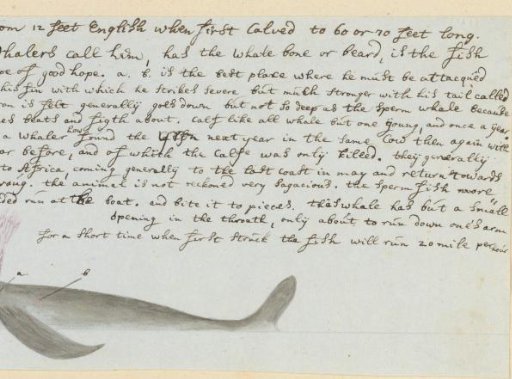 om 12 feet English when first Calved to 60 or 70 feet long.
Whalers call him, has the whale bone or beard, is the fish
pe of good hope. a. b. is the best place where he must be attacqued
his fin with which he strikes severe but much stronger with his tail called
on is felt generally goes down but not so deep as the sperm whale because
es boats and figth about. Calf like all whale but one young, and once a year
a whaler found the next year in the same Cow then again with
ar before, and of which the calfe was only killed. they generally
to Africa, coming generally to the East coast in may and return towards
the animal is not reckoned very sagacious. the sperm fish more
run at the boat. and bite it to pieces. this whale has but a small
opening in the throath, only about to run down one's arm
for a short time when first struck the fish will run 20 mile per hour
a b